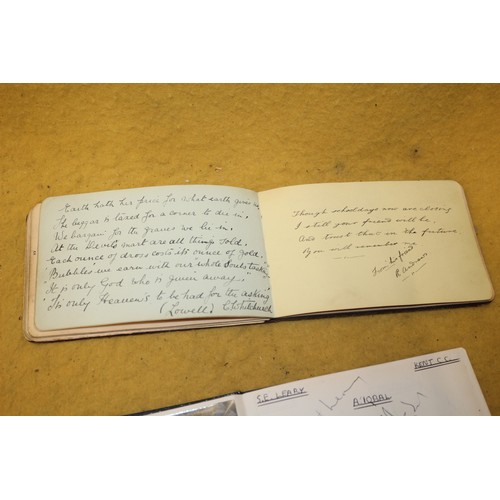 Earth hath his price for what earth gives us,
The beggar is taxed for a corner to die in,
We bargain for the graves we lie in.
At the Devil's mart are all things sold.
Each ounce of dross costs its ounce of gold.
Bubbles we earn with our whole souls tasking
"It is only God who is given away."
"Tis only Heaven's to be had for the asking"
(Lowell)
Though schooldays now are closing
I still your friend will be,
And trust that in the future
You will remember me
R Andrews
S.E. LEARY
A IQBAL
KENT C.C.